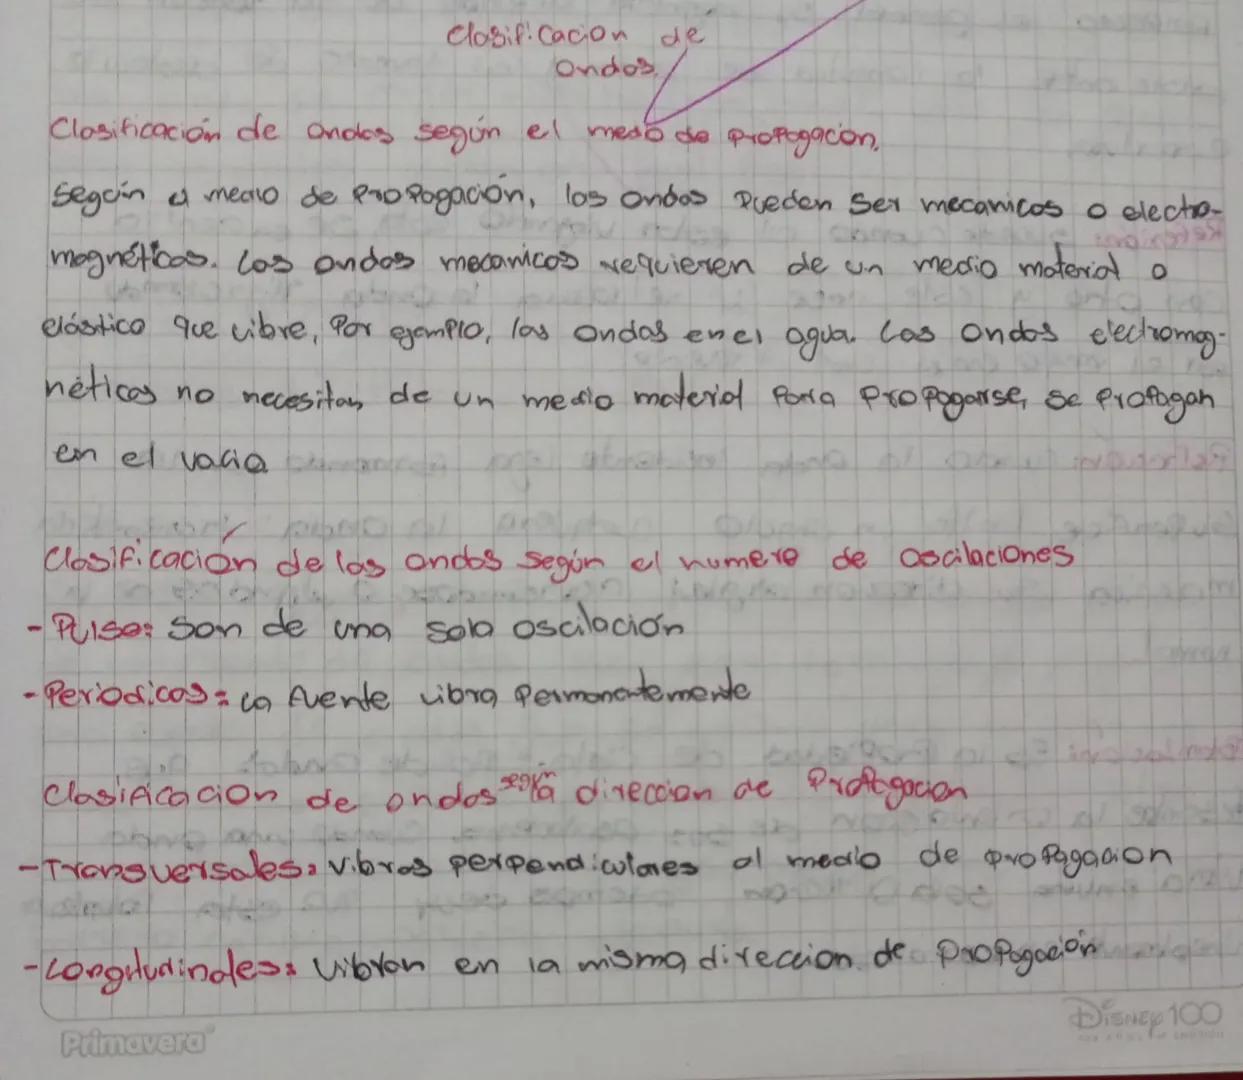 Clasificacion de
Ondas.
Clasificación de ondas según el medio de propagacion.
Según el medio de Propagación, las ondas pueden ser mecanicas o electro-
magnéticas. Las ondas mecanicas requieren de un medio material o
elástico que vibre, Por ejemplo, las ondas en el agua. Las Ondas electromag-
néticas no necesitan de un medio material para propagarse, se propagan
en el vacia
Clasificación de las ondas según el numero de Oscilaciones
- Pulso: Son de una sola oscilación
- Periodicas: La fuente vibra permanentemente
Clasificacion de ondas según la direccion de Propagacion
- Transversales: vibras perpendiculares al medio de propagacion
- Longitudinales: Vibran en la misma direccion de Propagación
Primavera
DISNEY 100